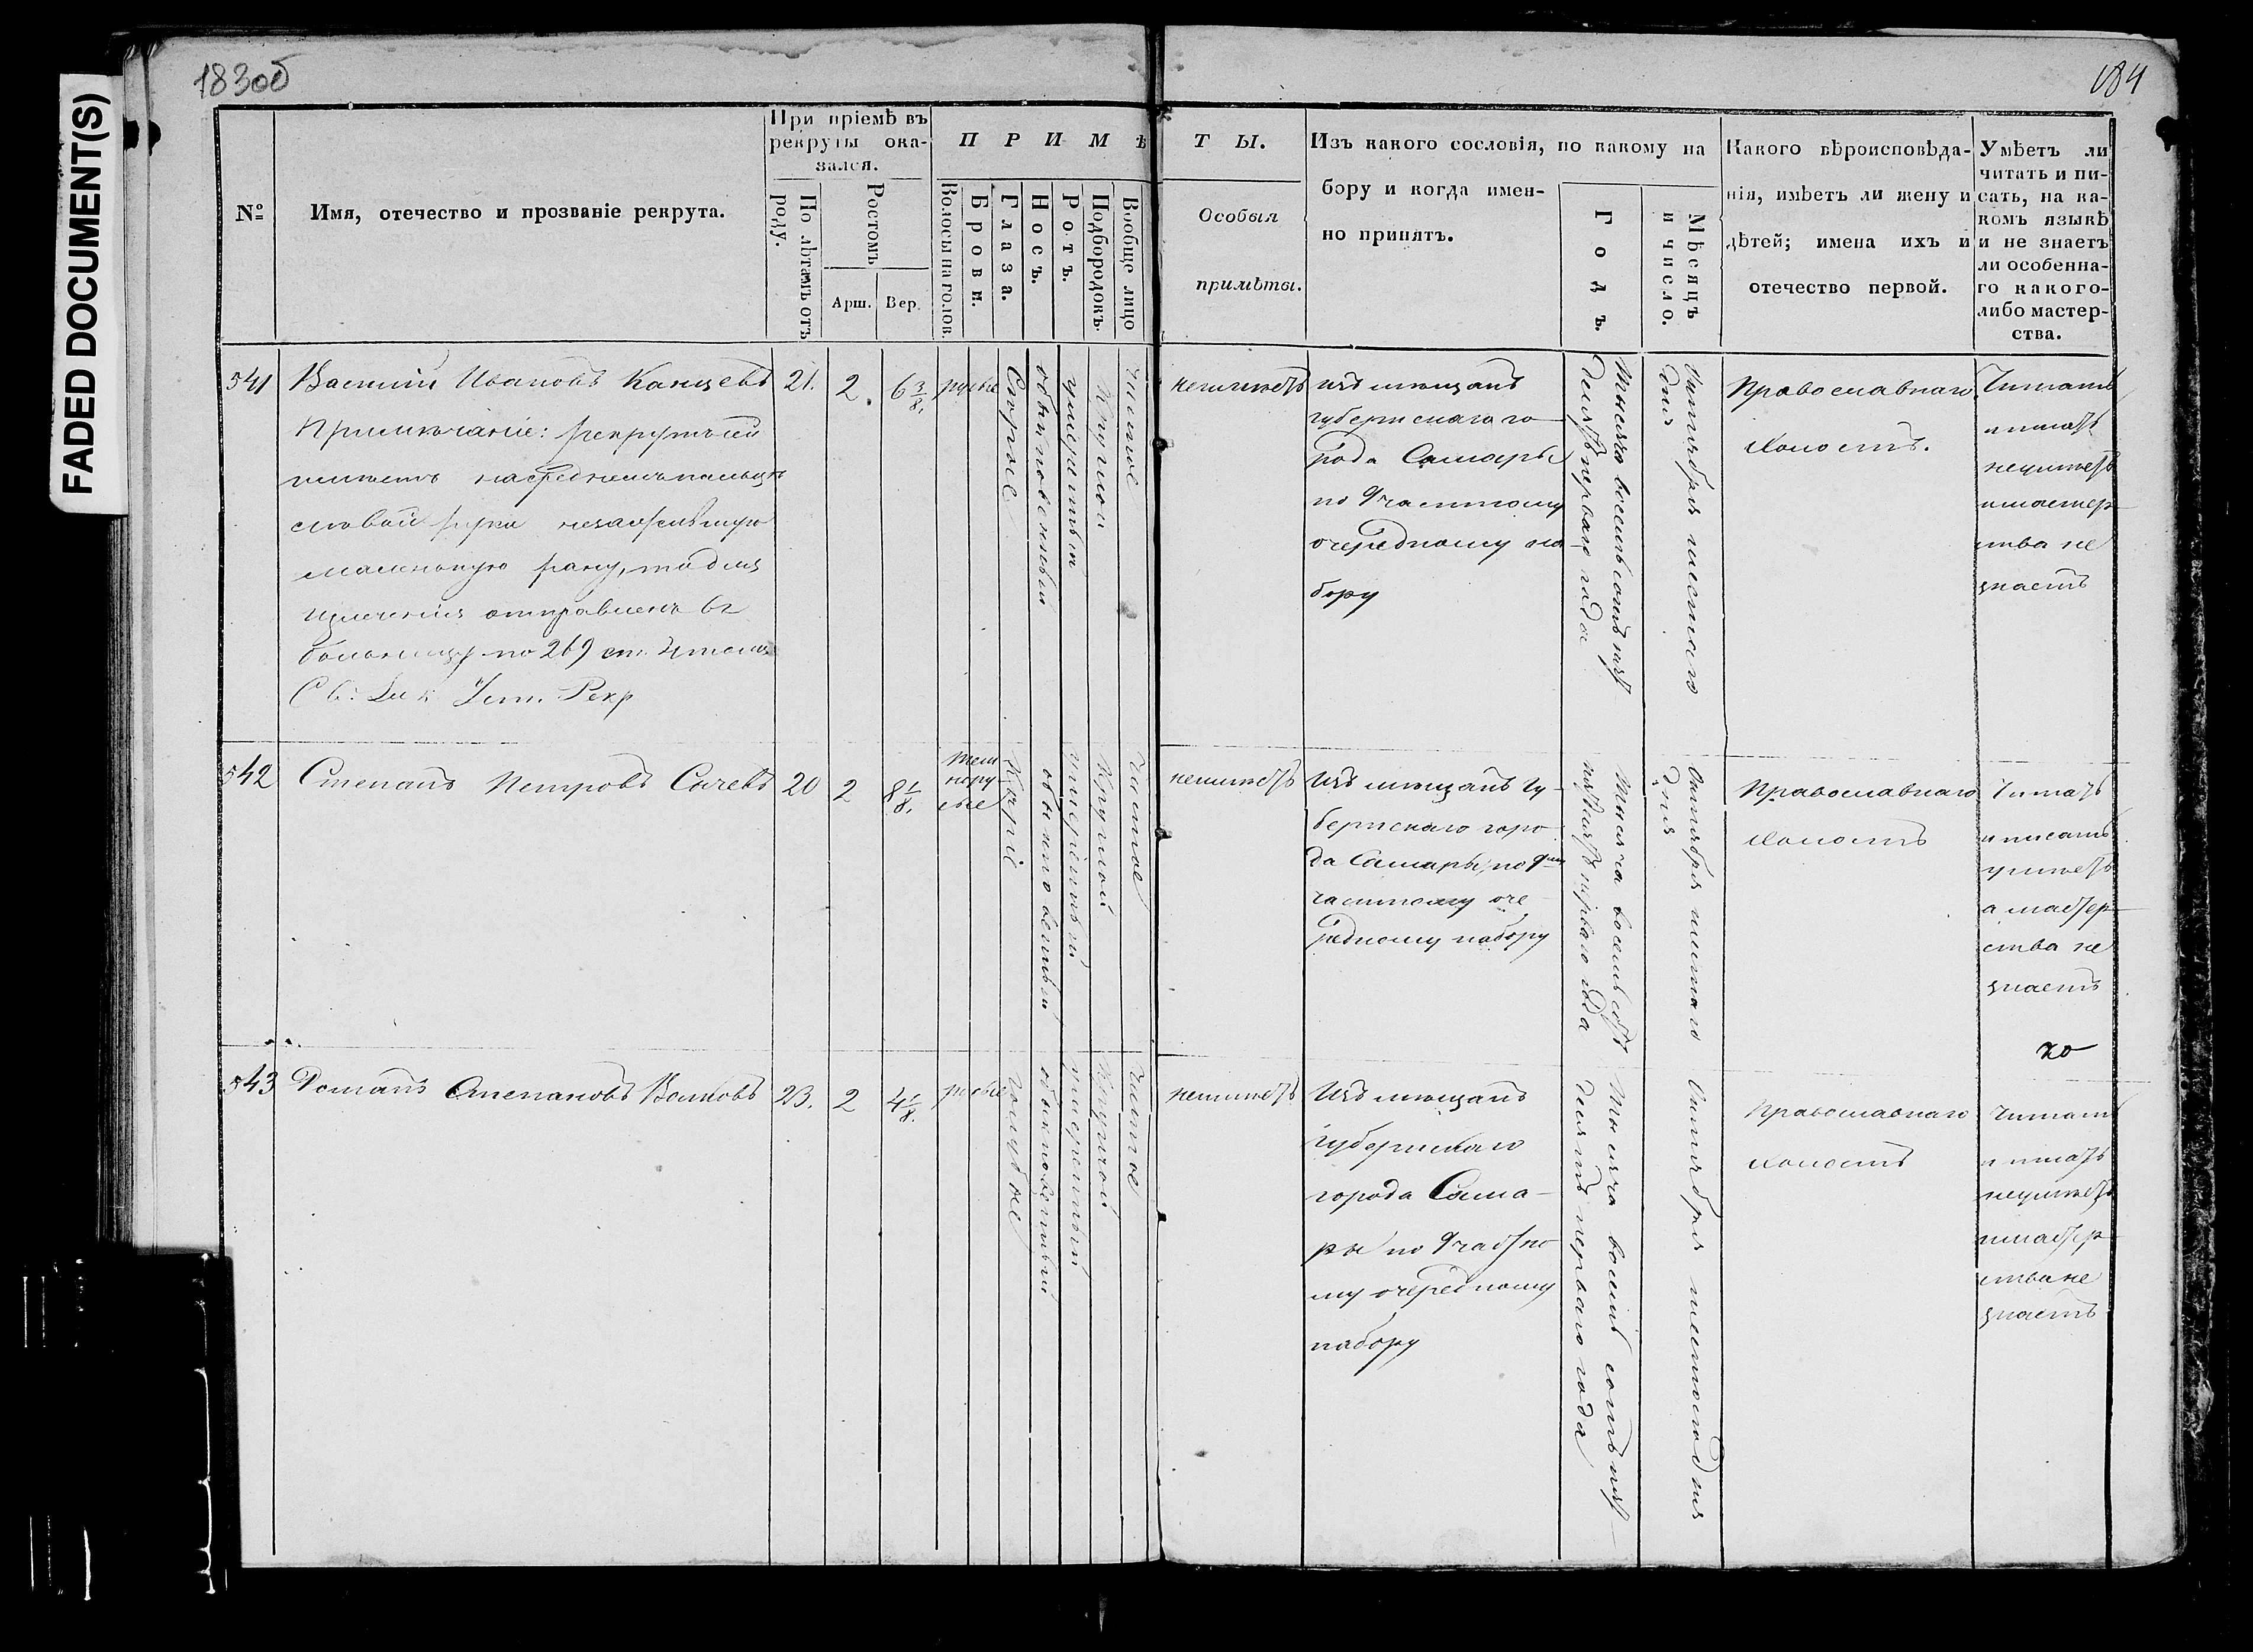 FADED DOCUMENT(S)
183об
184
№
Имя, отечество и прозваніе рекрута.
При пріемѣ въ
рекруты ока-
зался.
По лѣтамъ отъ
роду.
Ростомъ
Арш.
Вер.
ПРИМѢ
Волосы на голов.
Брови.
Глаза.
Носъ.
Ротъ.
Подбородокъ.
Вообще лицо
ТЫ.
Особыя
примѣты.
Изъ какого сословія, по какому на
бору и когда имен-
но принятъ.
Годъ.
Мѣсяцъ
и число.
Какого вѣроисповѣда-
нія, имѣетъ ли жену и
дѣтей; имена ихъ и
отечество первой.
Умѣетъ ли
читать и пи-
сать, на ка-
комъ языкѣ
и не знаетъ
ли особенна-
го какого-
либо мастер-
ства.
541
Василій Ивановъ
Примѣчаніе: рекрутъ сей
имѣетъ на среднемъ пальцѣ
лѣвой руки незажившую
маленькую рану, то для
излеченія отправленъ въ
больницу по 269 ст. 4 тома
Св. Зак. Уст. Рекр
21.
2.
6 3/8.
русые
Сѣрые
обыкновенный
умѣренный
Круглой
чистое
неимѣетъ
изъ мѣщанъ
губернскаго го
рода Самары
по 9 частному
очередному на
бору
Тысяча восемьсотъ пят
десятъ перваго года
Октября шестаго
дня
Православнаго
холостъ.
Читать
и писать
неумѣетъ
и мастер
ства не
знаетъ
542
Степанъ Петровъ Сычевъ
20
2
8 1/8.
тем
нору
сые
Каріе
обыкновенный
умѣренный
Круглой
Чистое
неимѣетъ
Изъ мѣщанъ гу
бернскаго горо
да Самары, по 9му
частному оче
редному набору
Тысяча восемьсотъ
пятдесятъ перваго года
Октября шестаго
дня
Православнаго
холостъ
Читать
и писать
умѣетъ
а мастер
ства не
знаетъ
543
Романъ Степановъ Волковъ
23.
2
4 1/8.
русые
голубые
обыкновенный
умѣренный
Круглой
Чистое
неимѣетъ
Изъ мѣщанъ
губернскаго
города Сама-
ры по 9 частно
му очередному
набору
Тысяча восемьсотъ пят-
десятъ перваго года
Октября шестаго дня
Православнаго
холостъ
Читать
и писать
неумѣетъ
и мастер
ства не
знаетъ